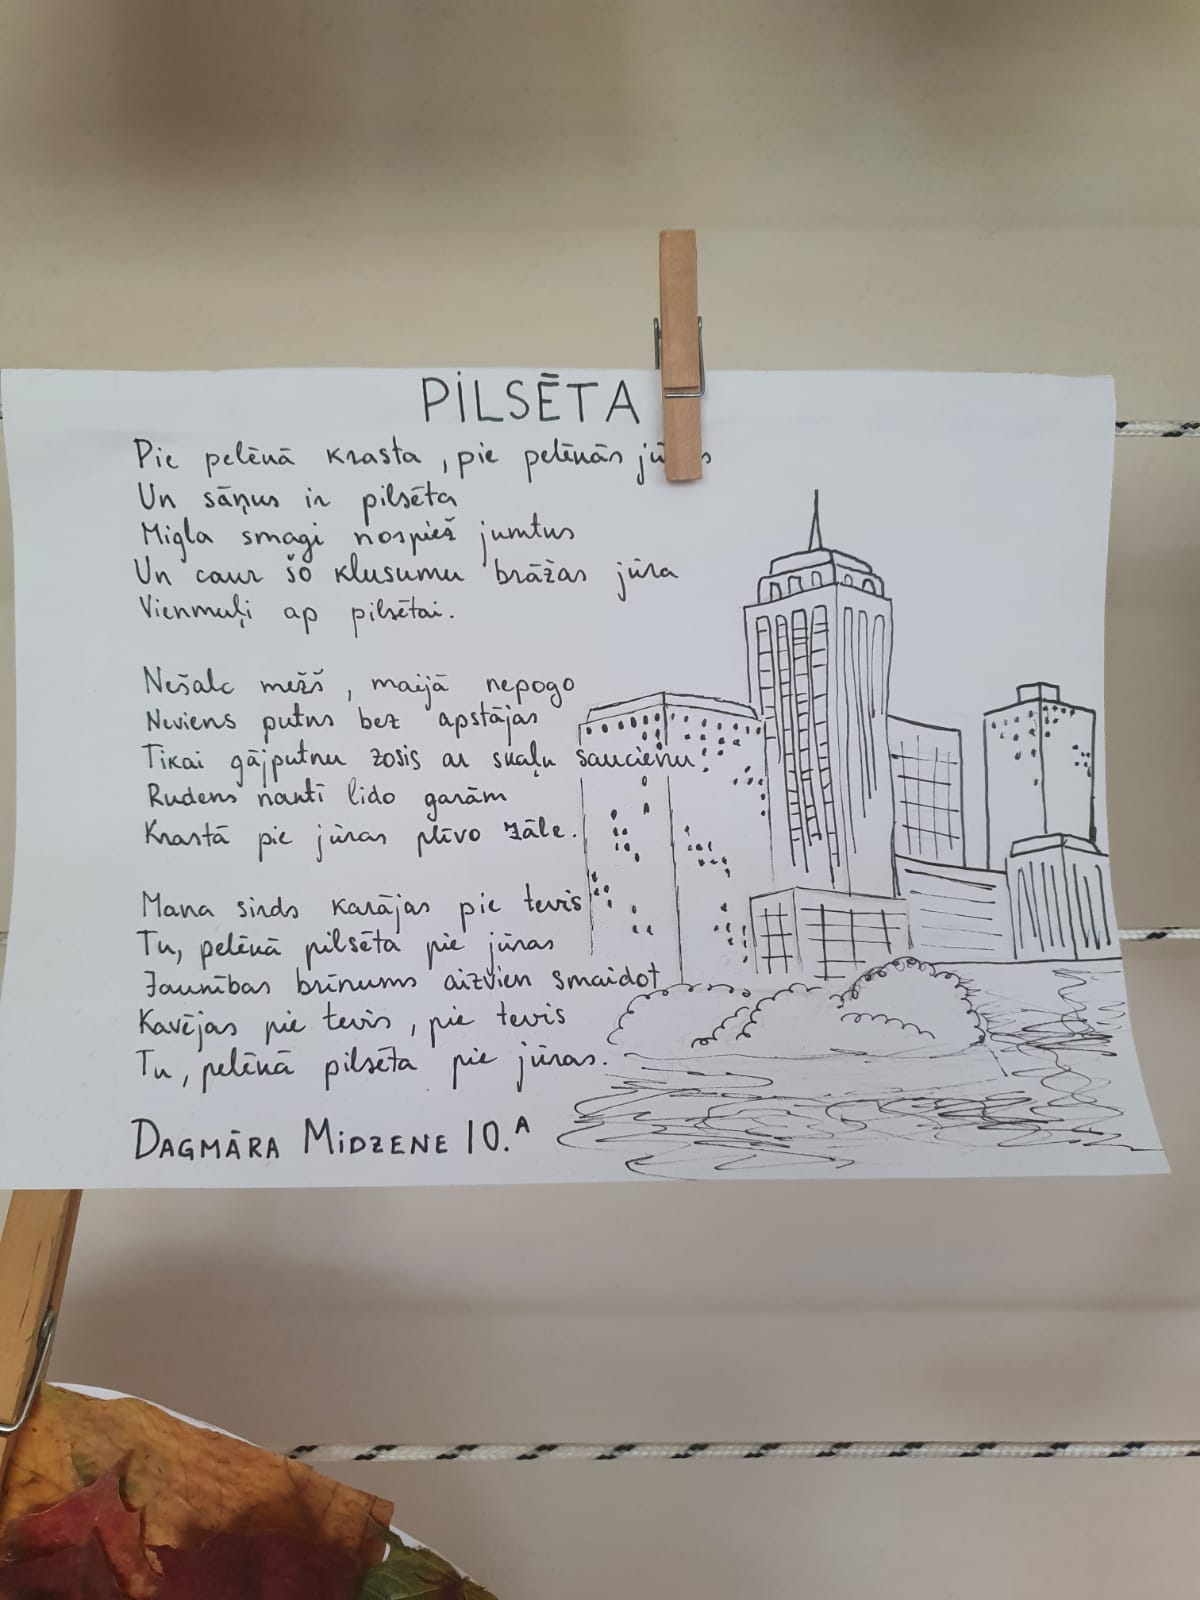 PILSĒTA
Pie pelēnā krasta, pie pelēnās
Un sāņus ir pilsēta
Migla smagi nospiež jumtus
Un caur šo klusumu brāžas jūra
Vienmuļi ap pilsētai.
Nešalc mežš, maijā nepogo
Neviens putns bez apstājas
Tikai gājputnu zosis ar skaļu saucienu.
Rudens nantī lido garām
Krastā pie jūras plīvo zāle.
Mana sirds karājas pie tevis
Tu, pelēnā pilsēta pie jūras
Jaunības brīnums aizvien smaidot
Kavējas pie tevis, pie tevis
Tu, pelēnā pilsēta pie jūras.
DAGMĀRA MIDZENE 10.A